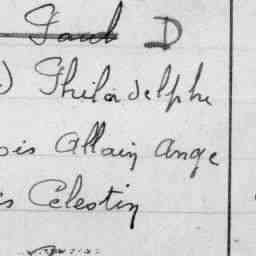 Paul D
) Philadelphe
ois Allain Ange
is Celestin